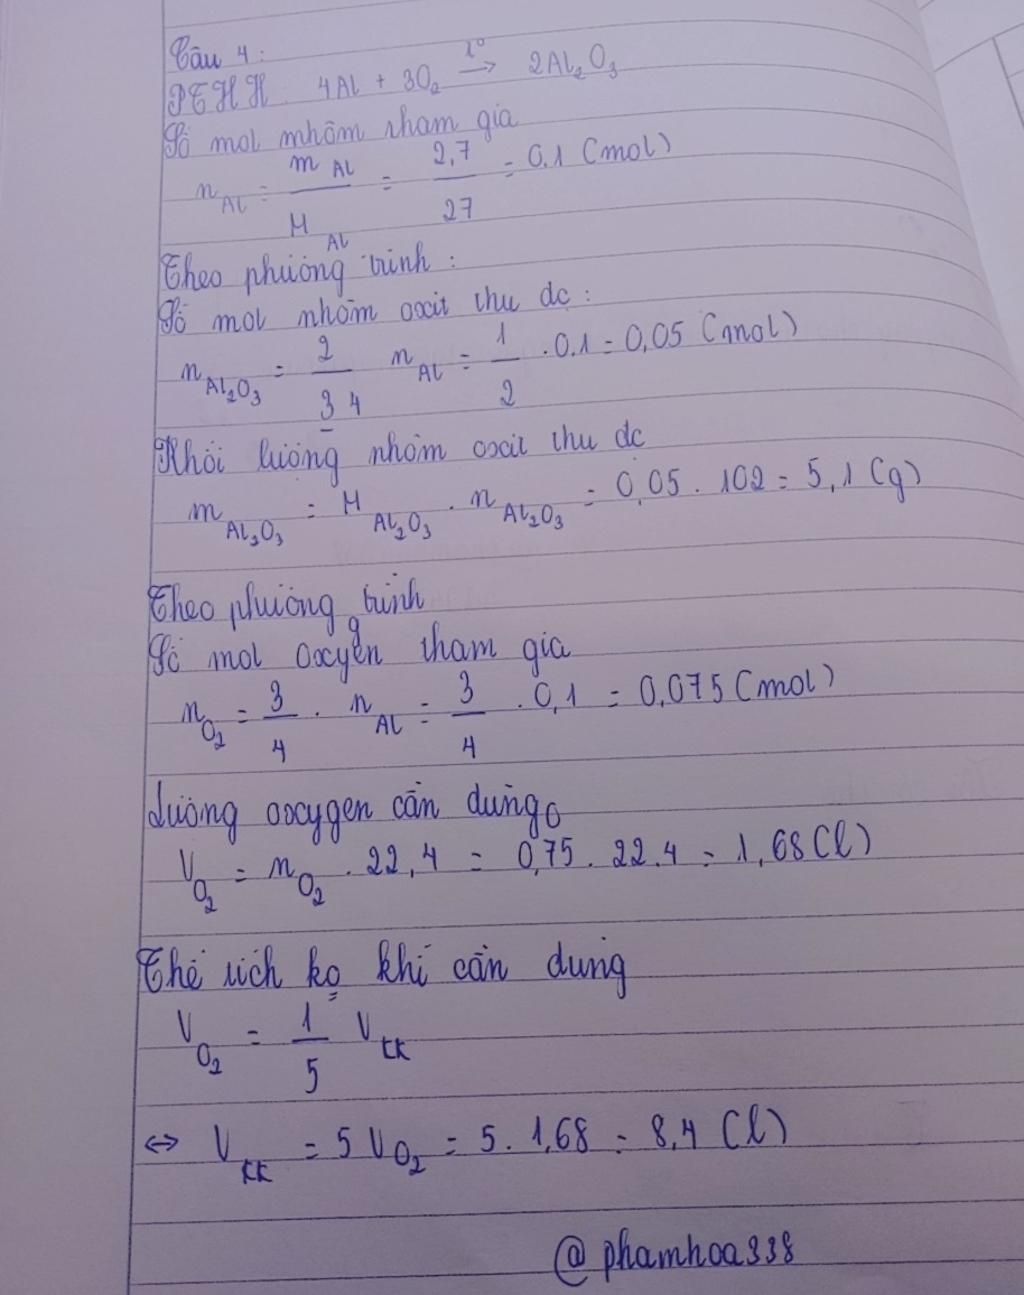 Câu 4:
PTHH. 4Al + 3O₂ →t° 2Al₂O₃
Số mol nhôm tham gia
n Al = m Al / M Al = 2,7 / 27 = 0.1 (mol)
Theo phương trình:
Số mol nhôm oxit thu dc:
n Al₂O₃ = 2 / 3 4 n Al = 1 / 2 . 0.1 = 0,05 (mol)
Khối lượng nhôm oxit thu dc
m Al₂O₃ = M Al₂O₃ . n Al₂O₃ = 0,05 . 102 = 5,1 (g)
Theo phương trình
Số mol oxygen tham gia
n O₂ = 3 / 4 . n Al = 3 / 4 . 0,1 = 0,075 (mol)
Lượng oxygen cần dùng
V O₂ = n O₂ . 22,4 = 0,75 . 22.4 = 1,68 (l)
Thể tích ko khí cần dùng
V O₂ = 1 / 5 V kk
⇔ V kk = 5 V O₂ = 5 . 1,68 = 8,4 (l)
@phamhoa338